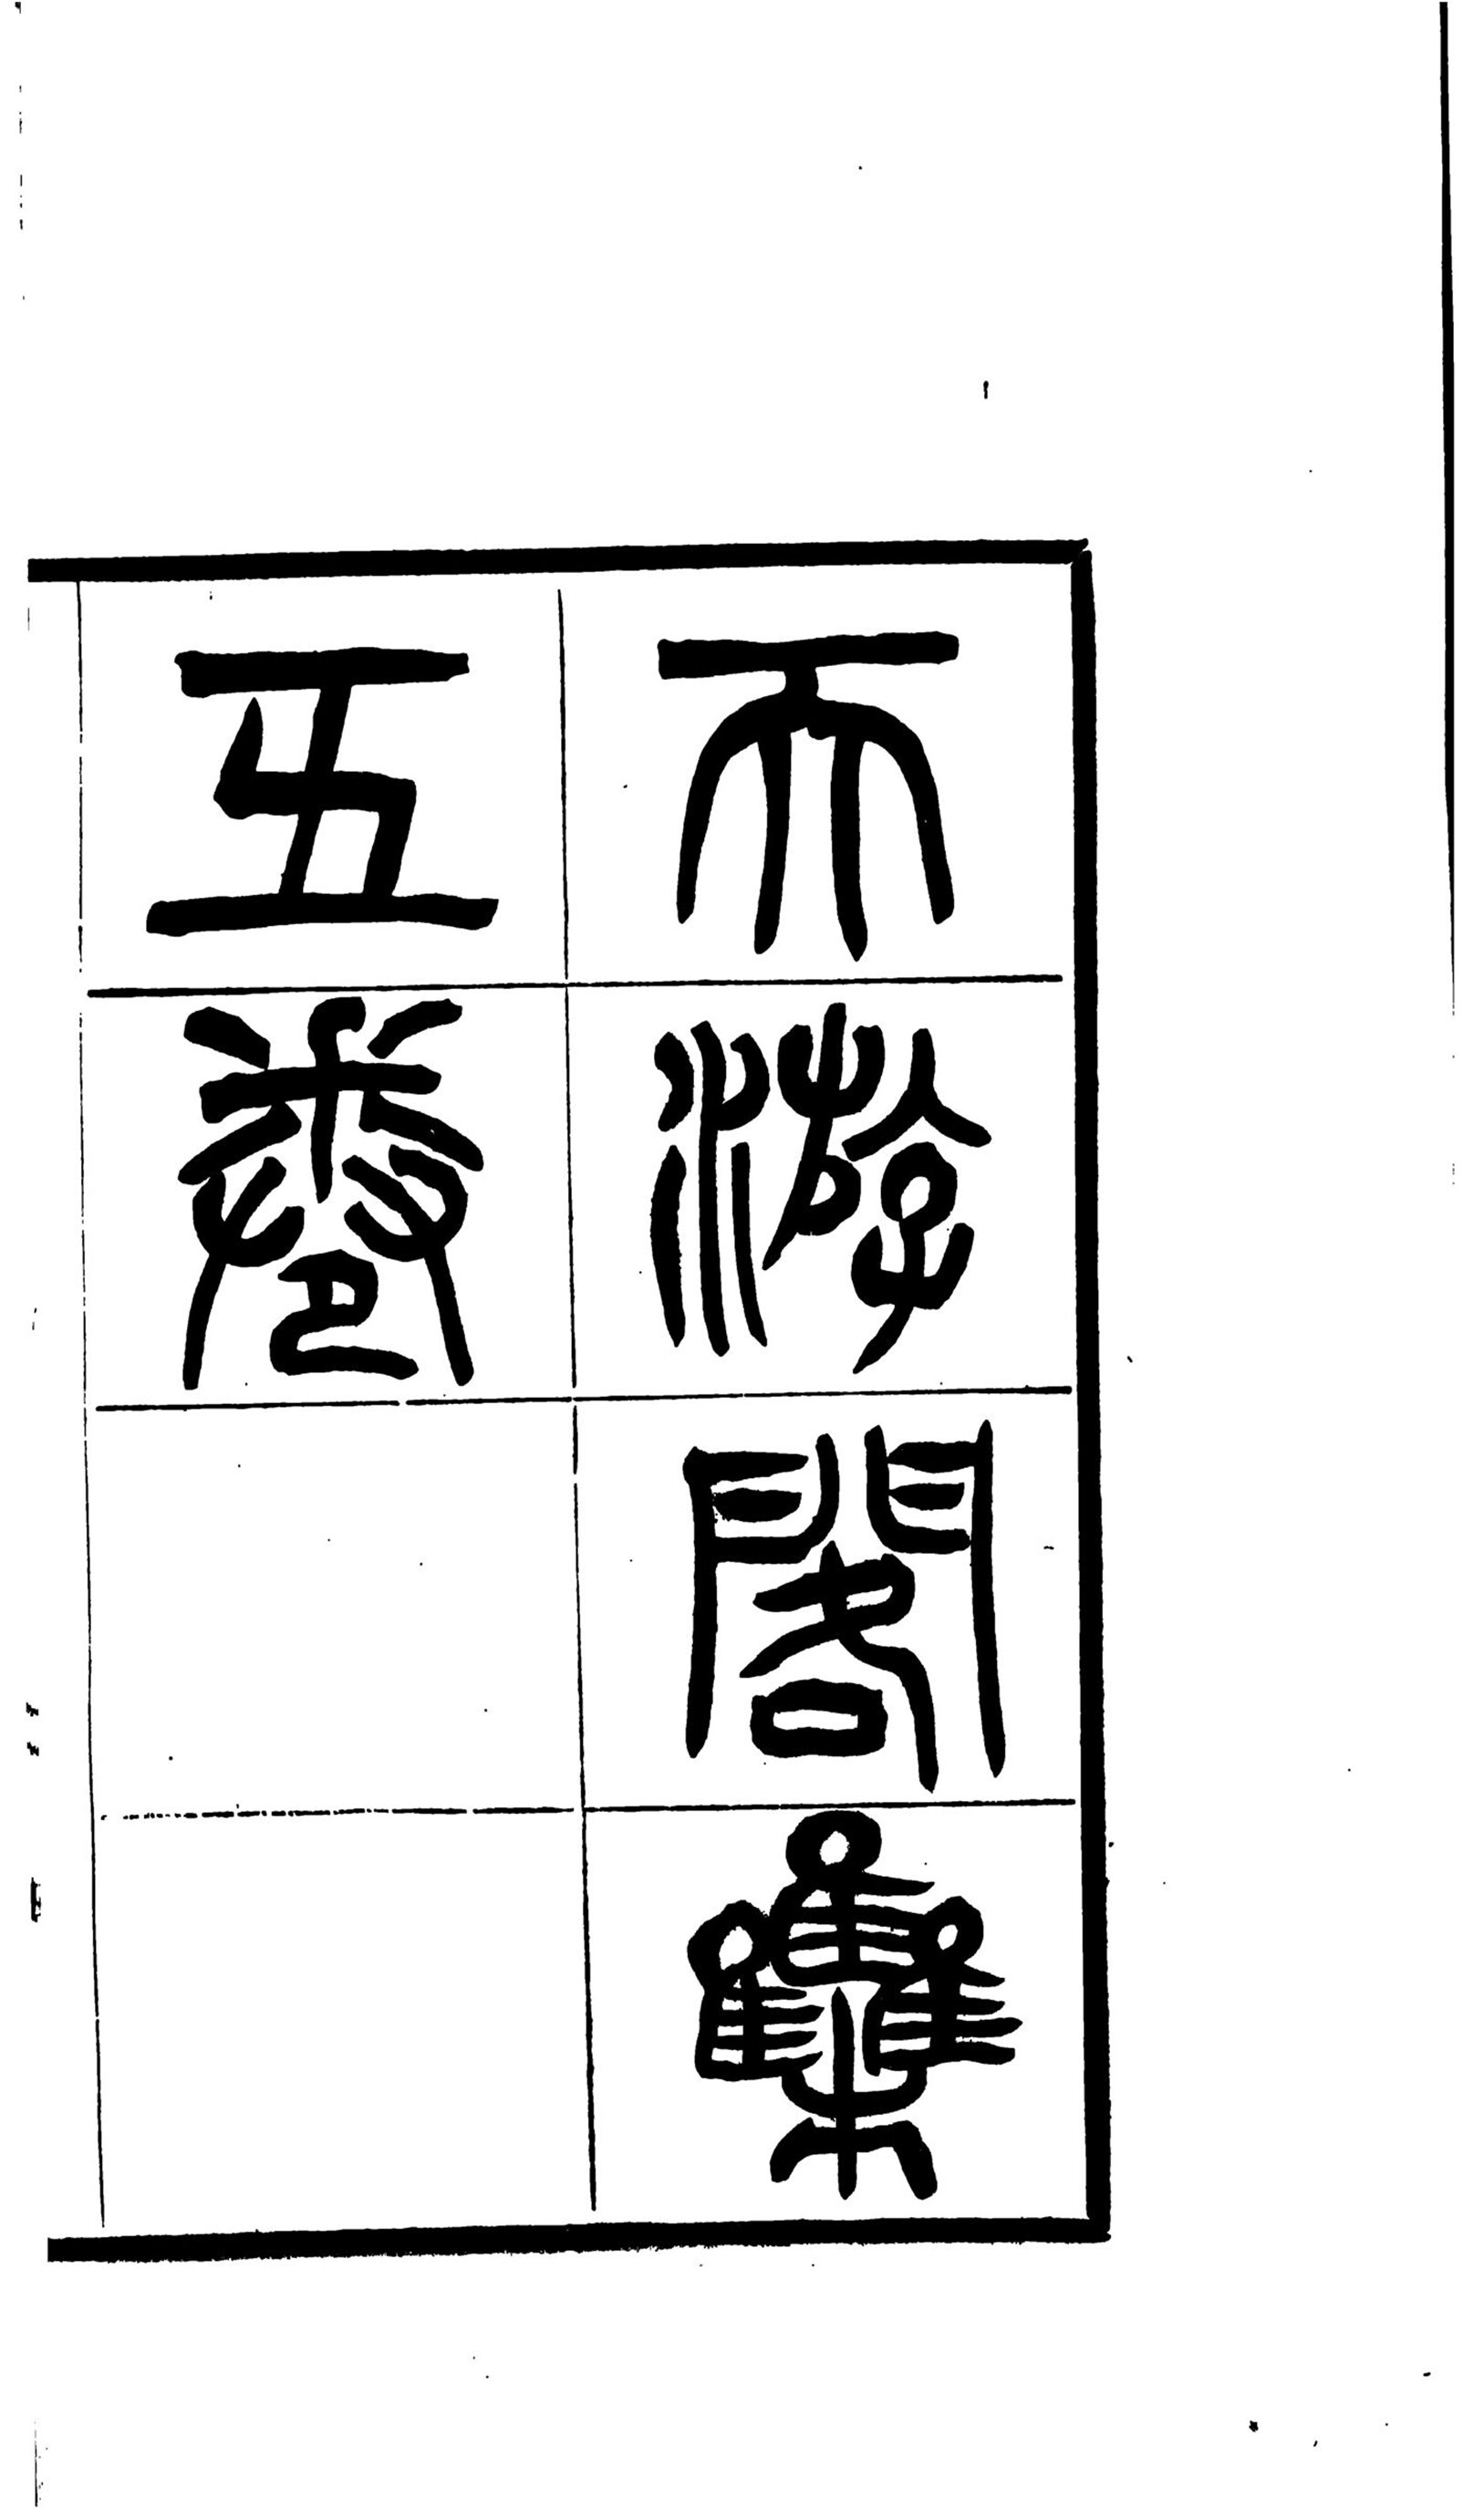 天游閣集
五卷